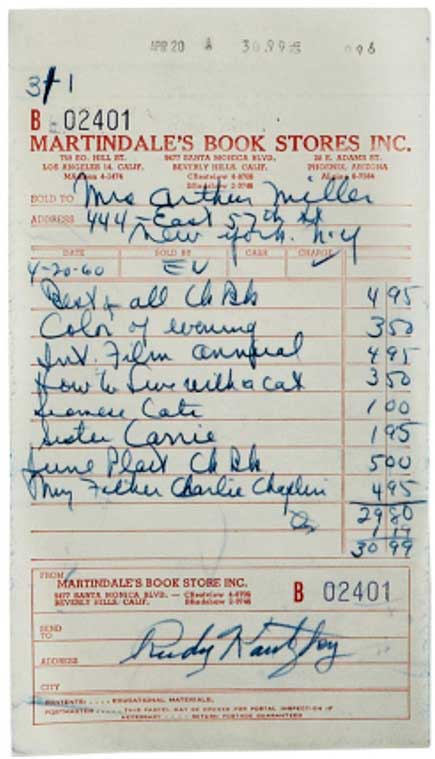 APR 20 A 30.99 096
3/1
B 02401
MARTINDALE'S BOOK STORES INC.
SO. HILL ST. 9477 SANTA MONICA BLVD. E. ADAMS ST.
LOS ANGELES 14, CALIF. BEVERLY HILLS, CALIF. PHOENIX, ARIZONA
SOLD TO Mrs Arthur Miller
ADDRESS 444 - East 57th St
New York. N.Y
DATE SOLD BY CASH CHARGE
4-20-60 EV ✓
Best of all Ck Bk 4 95
Color of evening 3 50
Int. Film annual 4 95
How to live with a cat 3 50
Siamese Cats 1 00
Sister Carrie 1 95
June Platt Ck Bk 5 00
My Father Charlie Chaplin 4 95
29 80
1 19
30 99
FROM
MARTINDALE'S BOOK STORE INC.
9477 SANTA MONICA BLVD. — CRestview
BEVERLY HILLS, CALIF. BRadshaw
B 02401
SEND TO
Rudy
ADDRESS
CITY
CONTENTS: .... EDUCATIONAL MATERIALS.
POSTMASTER .... THIS PARCEL MAY BE OPENED FOR POSTAL INSPECTION IF
NECESSARY .... RETURN POSTAGE GUARANTEED